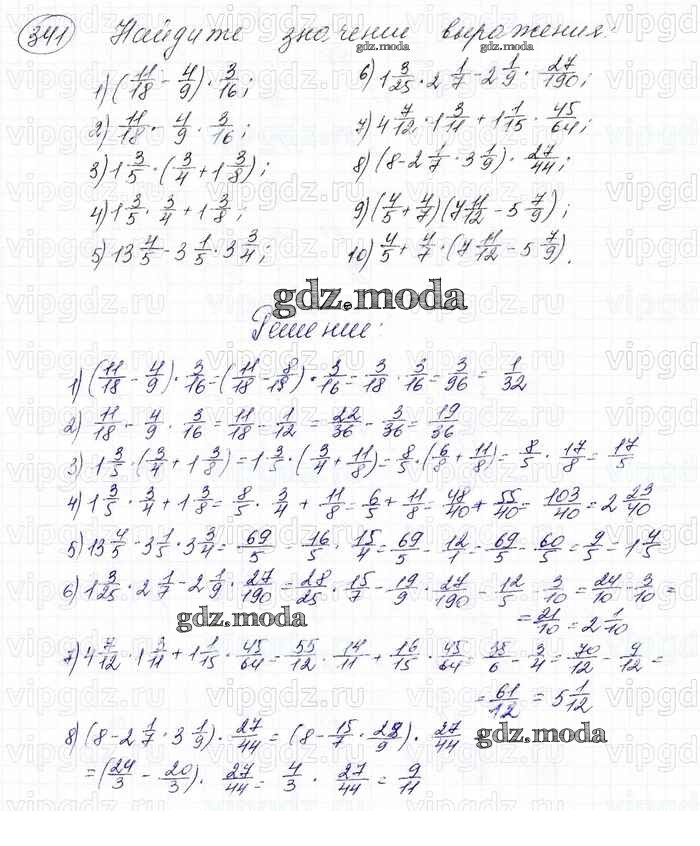 341 Найдите значение выражения:
1) (11/18 - 4/9) · 3/16; 6) 1 3/25 · 2 1/7 - 2 1/9 · 27/190;
2) 11/18 · 4/9 · 3/16; 7) 4 7/12 · 1 3/11 + 1 1/15 · 45/64;
3) 1 3/5 · (3/4 + 1 3/8); 8) (8 - 2 1/7 · 3 1/9) · 27/44;
4) 1 3/5 · 3/4 + 1 3/8; 9) (4/5 + 4/7) (7 11/12 - 5 7/9);
5) 13 4/5 - 3 1/5 · 3 3/4; 10) 4/5 + 4/7 · (7 11/12 - 5 7/9).
gdz.moda
Решение:
1) (11/18 - 4/9) · 3/16 = (11/18 - 8/18) · 3/16 = 3/18 · 3/16 = 3/96 = 1/32
2) 11/18 - 4/9 · 3/16 = 11/18 - 1/12 = 22/36 - 3/36 = 19/36
3) 1 3/5 · (3/4 + 1 3/8) = 1 3/5 · (3/4 + 11/8) = 8/5 · (6/8 + 11/8) = 8/5 · 17/8 = 17/5
4) 1 3/5 · 3/4 + 1 3/8 = 8/5 · 3/4 + 11/8 = 6/5 + 11/8 = 48/40 + 55/40 = 103/40 = 2 23/40
5) 13 4/5 - 3 1/5 · 3 3/4 = 69/5 - 16/5 · 15/4 = 69/5 - 12/1 = 69/5 - 60/5 = 9/5 - 1 4/5
6) 1 3/25 · 2 1/7 - 2 1/9 · 27/190 = 28/25 · 15/7 - 19/9 · 27/190 - 12/5 - 3/10 = 24/10 - 3/10 =
= 21/10 = 2 1/10
gdz.moda
7) 4 7/12 · 1 3/11 + 1 1/15 · 45/64 = 55/12 · 14/11 + 16/15 · 45/64 = 35/6 - 3/4 = 70/12 - 9/12 =
= 61/12 = 5 1/12
8) (8 - 2 1/7 · 3 1/9) · 27/44 = (8 - 15/7 · 28/9) · 27/44
gdz.moda
= (24/3 - 20/3) · 27/44 = 4/3 · 27/44 = 9/11